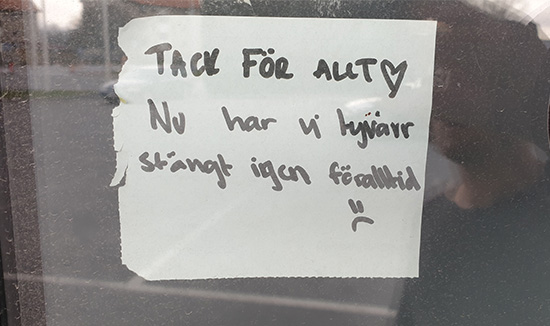 TACK FÖR ALLT♡
Nu har vi tyvärr
stängt igen föralltid
:(